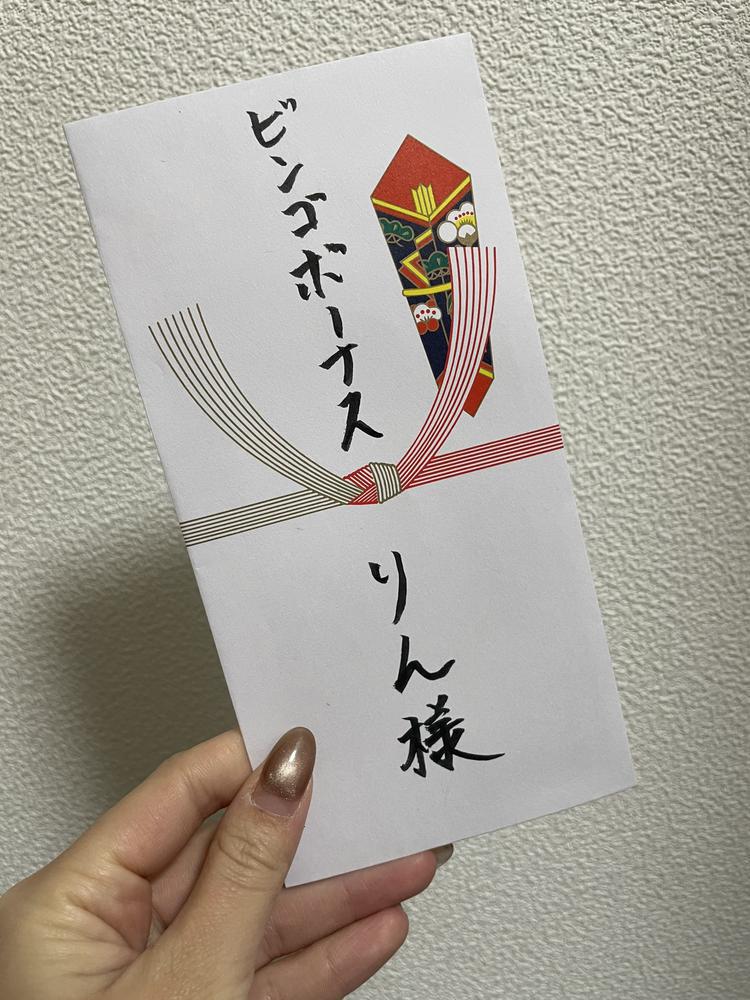 ビンゴボーナス
りん様